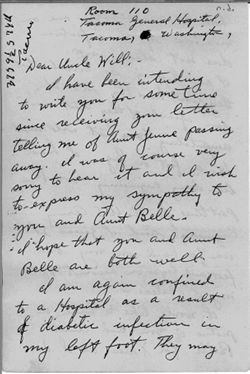 n.d.
Room 110
Tacoma General Hospital,
Tacoma, Washington,
Dear Uncle Will:-
I have been intending
to write you for some time
since receiving your letter
telling me of Aunt Jennie passing
away. I was of course very
sorry to hear it and I wish
to express my sympathy to
you and Aunt Belle.
I hope that you and Aunt
Belle are both well.
I am again confined
to a Hospital as a result
of diabetic infection in
my left foot. They may